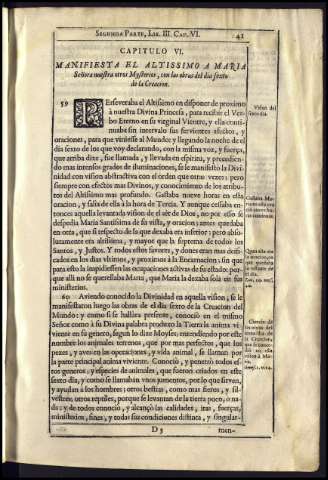 SEGUNDA PARTE, LIB. III. CAP. VI. 41
CAPITULO VI.
MANIFIESTA EL ALTISSIMO A MARIA
Señora nuestra otros Mysterios, con las obras del dia sexto
de la Creacion.
59 PErseveraba el Altissimo en disponer de proximo
à nuestra Divina Princesa, para recibir el Ver
bo Eterno en su virginal Vientre, y ella conti-
nuaba sin intervalo sus fervientes afectos, y
oraciones, para que viniesse al Mundo; y llegando la noche de el
dia sexto de los que voy declarando, con la misma voz, y fuerça,
que arriba dixe, fue llamada, y llevada en espiritu, y precedien-
do mas intensos grados de iluminaciones, se le manifestò la Divini-
dad con vision abstractiva con el orden que otras veces; pero
siempre con efectos mas Divinos, y conocimiento de los atribu-
tos del Altissimo mas profundo. Gastaba nueve horas en esta
oracion, y salia de ella à la hora de Tercia. Y aunque cessaba en-
tonces aquella levantada vision de el sèr de Dios, no por esso se
despedia Maria Santissima de su vista, y oracion; antes quedaba
en otra, que si respecto de la que dexaba era inferior; pero abso-
lutamente era altissima, y mayor que la suprema de todos los
Santos, y Justos. Y todos estos favores, y dones eran mas deifi-
cados en los dias ultimos, y proximos à la Encarnacion; sin que
para esto la impidiessen las ocupaciones activas de su estado, por-
que alli no se querellaba Marta, que Maria la dexaba sola en sus
ministerios.
60 Aviendo conocido la Divinidad en aquella vision, se le
manifestaron luego las obras de el dia sexto de la Creacion del
Mundo; y como si se hallàra presente, conociò en el mismo
Señor como à su Divina palabra produxo la Tierra la anima vi-
viente en su genero, segun lo dize Moyses; entendiendo por este
nombre los animales terrenos, que por mas perfectos, que los
pezes, y aves en las operaciones, y vida animal, se llaman por
la parte principal anima viviente. Conociò, y penetrò todos es-
tos generos, y especies de animales, que fueron criados en este
sexto dia, y como se llamaban unos jumentos, por lo que sirven,
y ayudan à los hombres; otros bestias, como mas fieros, y sil-
vestres; otros reptiles, porque se levantan de la tierra poco, ò na-
da; y de todos conociò, y alcançò las calidades, iras, fuerças,
ministerios, fines, y todas sus condiciones distinta, y singular-
D 5 men-
Vision del
sexto dia.